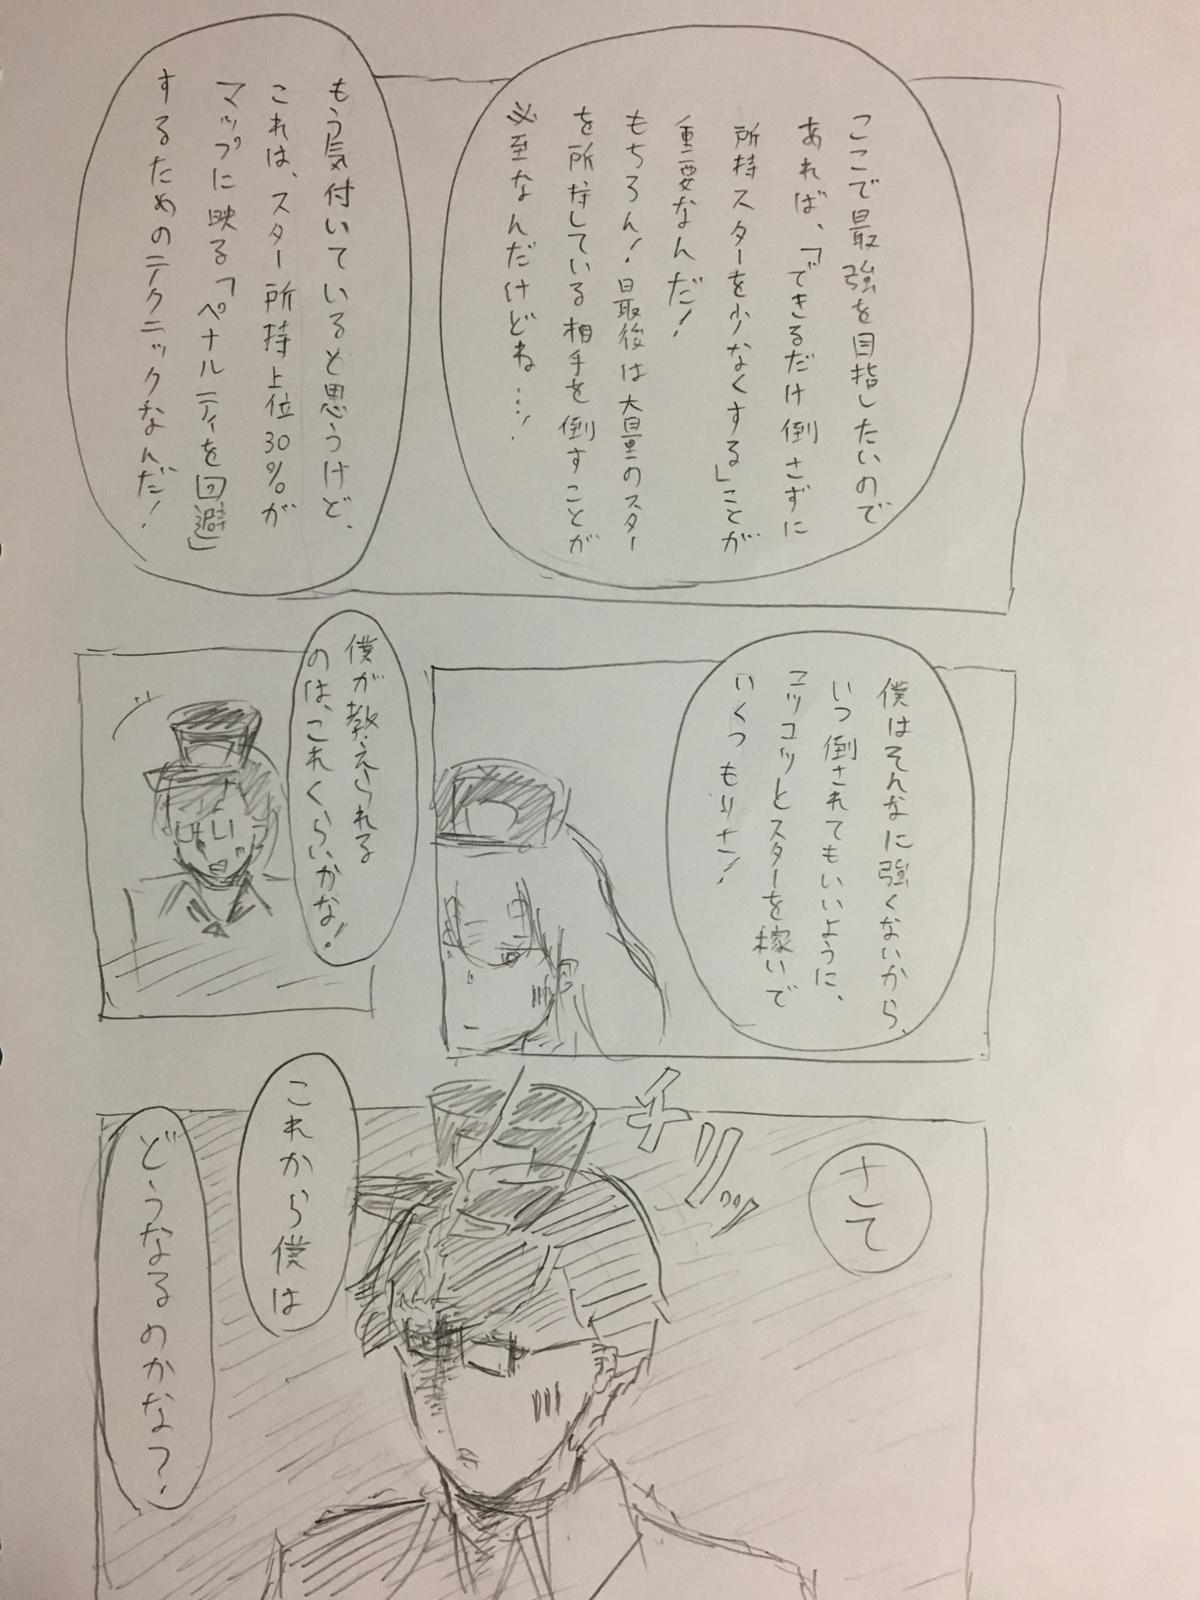 ここで最強を目指したいので
あれば、「できるだけ倒さずに
所持スターを少なくする」ことが
重要なんだ！
もちろん！最後は大量のスター
を所持している相手を倒すことが
必至なんだけどね…！
もう気付いていると思うけど、
これは、スター所持上位30%が
マップに映る「ペナルティを回避」
するためのテクニックなんだ！
僕はそんなに強くないから、
いつ倒されてもいいように、
コツコツとスターを稼いで
いくつもりさ！
僕が教えられる
のは、これくらいかな！
さて
チリッ
これから僕は
どうなるのかな？